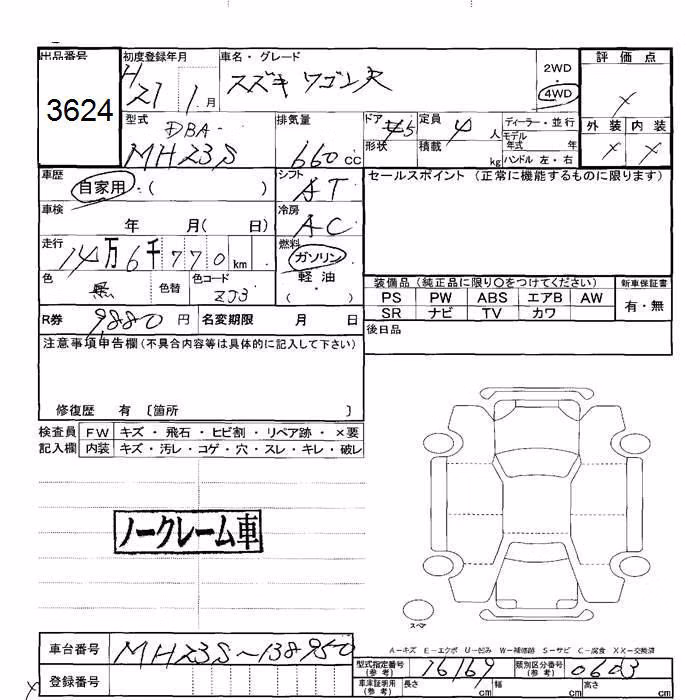 出品番号
3624
初度登録年月
H
21 1 月
車名・グレード
スズキ ワゴンR
2WD
4WD
評価点
×
外装 内装
× ×
型式
DBA-
MH23S
排気量
660 cc
ドア 5
形状
定員 4 人
積載 kg
ディーラー・並行
モデル
年式 年
ハンドル 左・右
車歴
自家用・( )
シフト
AT
セールスポイント (正常に機能するものに限ります)
車検
年 月( 日)
冷房
AC
走行
14万6千770 km
燃料
ガソリン
軽油
( )
色
黒
色替
色コード
ZJ3
装備品 (純正品に限り○をつけてください)
PS PW ABS エアB AW
SR ナビ TV カワ
新車保証書
有・無
R券 9880 円 名変期限 月 日
後日品
注意事項申告欄(不具合内容等は具体的に記入して下さい)
修復歴 有 〔箇所 〕
検査員 FW キズ・飛石・ヒビ割・リペア跡・×要
記入欄 内装 キズ・汚レ・コゲ・穴・スレ・キレ・破レ
ノークレーム車
スペア
A-キズ E-エクボ U-凹み W-補修跡 S-サビ C-腐食 XX-交換済
車台番号 MH23S~138950
登録番号
型式指定番号
(参考)
16169
類別区分番号
(参考)
0603
車庫証明用
(参考)
長さ cm
幅 cm
高さ cm